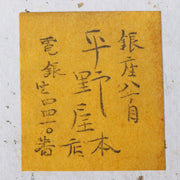 銀座八丁目
平野屋本店
電銀座四四一〇番